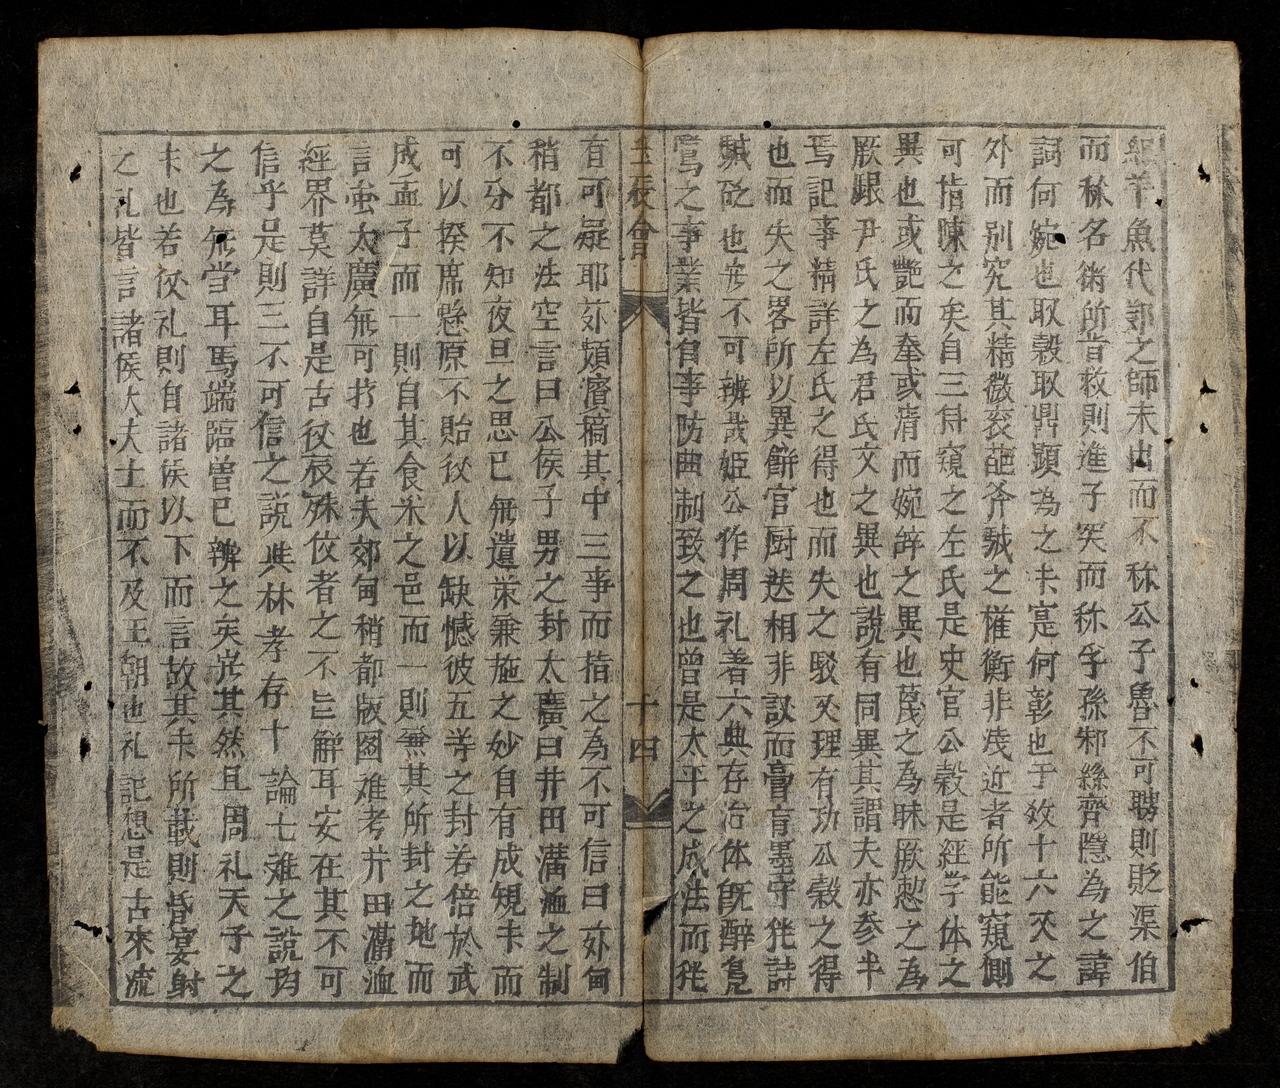 魚代郯之師未出而不称公子魯不可勝則貶渠伯
而秝名術所皆救則進子突而称字孫邾絲齊隱為之諱
詞何婉也取穀取鼎顕為之未寔何彰也于效十六天之
外而别究其精微衮葩斧誠之權衡非浅近者所能窺測
可指陳之矣自三傳窺之左氏是史官公穀是經学体之
異也或艷而奎或清而婉辞之異也蔑之為昧厥憖之為
厥銀尹氏之為君氏文之異也說有同異其謂夫亦参半
焉記事精詳左氏之得也而失之駁义理有功公穀之得
也而失之畧所以異餅官厨迭相非議而膏肓墨守徃詩
誠砭也寧不可辨哉姬公作周礼著六典存治体旣醉鳬
鷖之事業皆自事防曲制致之也曽是太平之成法而徃
十四
有可疑耶苏頴濱稿其中三事而指之為不可信曰邜甸
稍都之法空言曰公侯子男之封太廣曰井田溝洫之制
不分不知夜旦之思已無遺策兼施之妙自有成規未而
可以揆席懸原不貽後人以缺憾彼五等之封若倍於武
成孟子而一則自其食米之邑而一則兼其所封之地而
言虫太廣無可抃也若夫郊甸稍都版图难考井田溝洫
經界莫詳自是古役衰殊佼者之不旨解耳安在其不可
信乎是則三不可信之說與林孝存十論七难之說均
之為無当耳馬端臨曽已辨之矣岂其然且周礼天子之
未也若役礼則自諸侯以下而言故其未所載則昏宴射
之礼皆言諸侯大夫士而不及王朝也礼記想是古來流